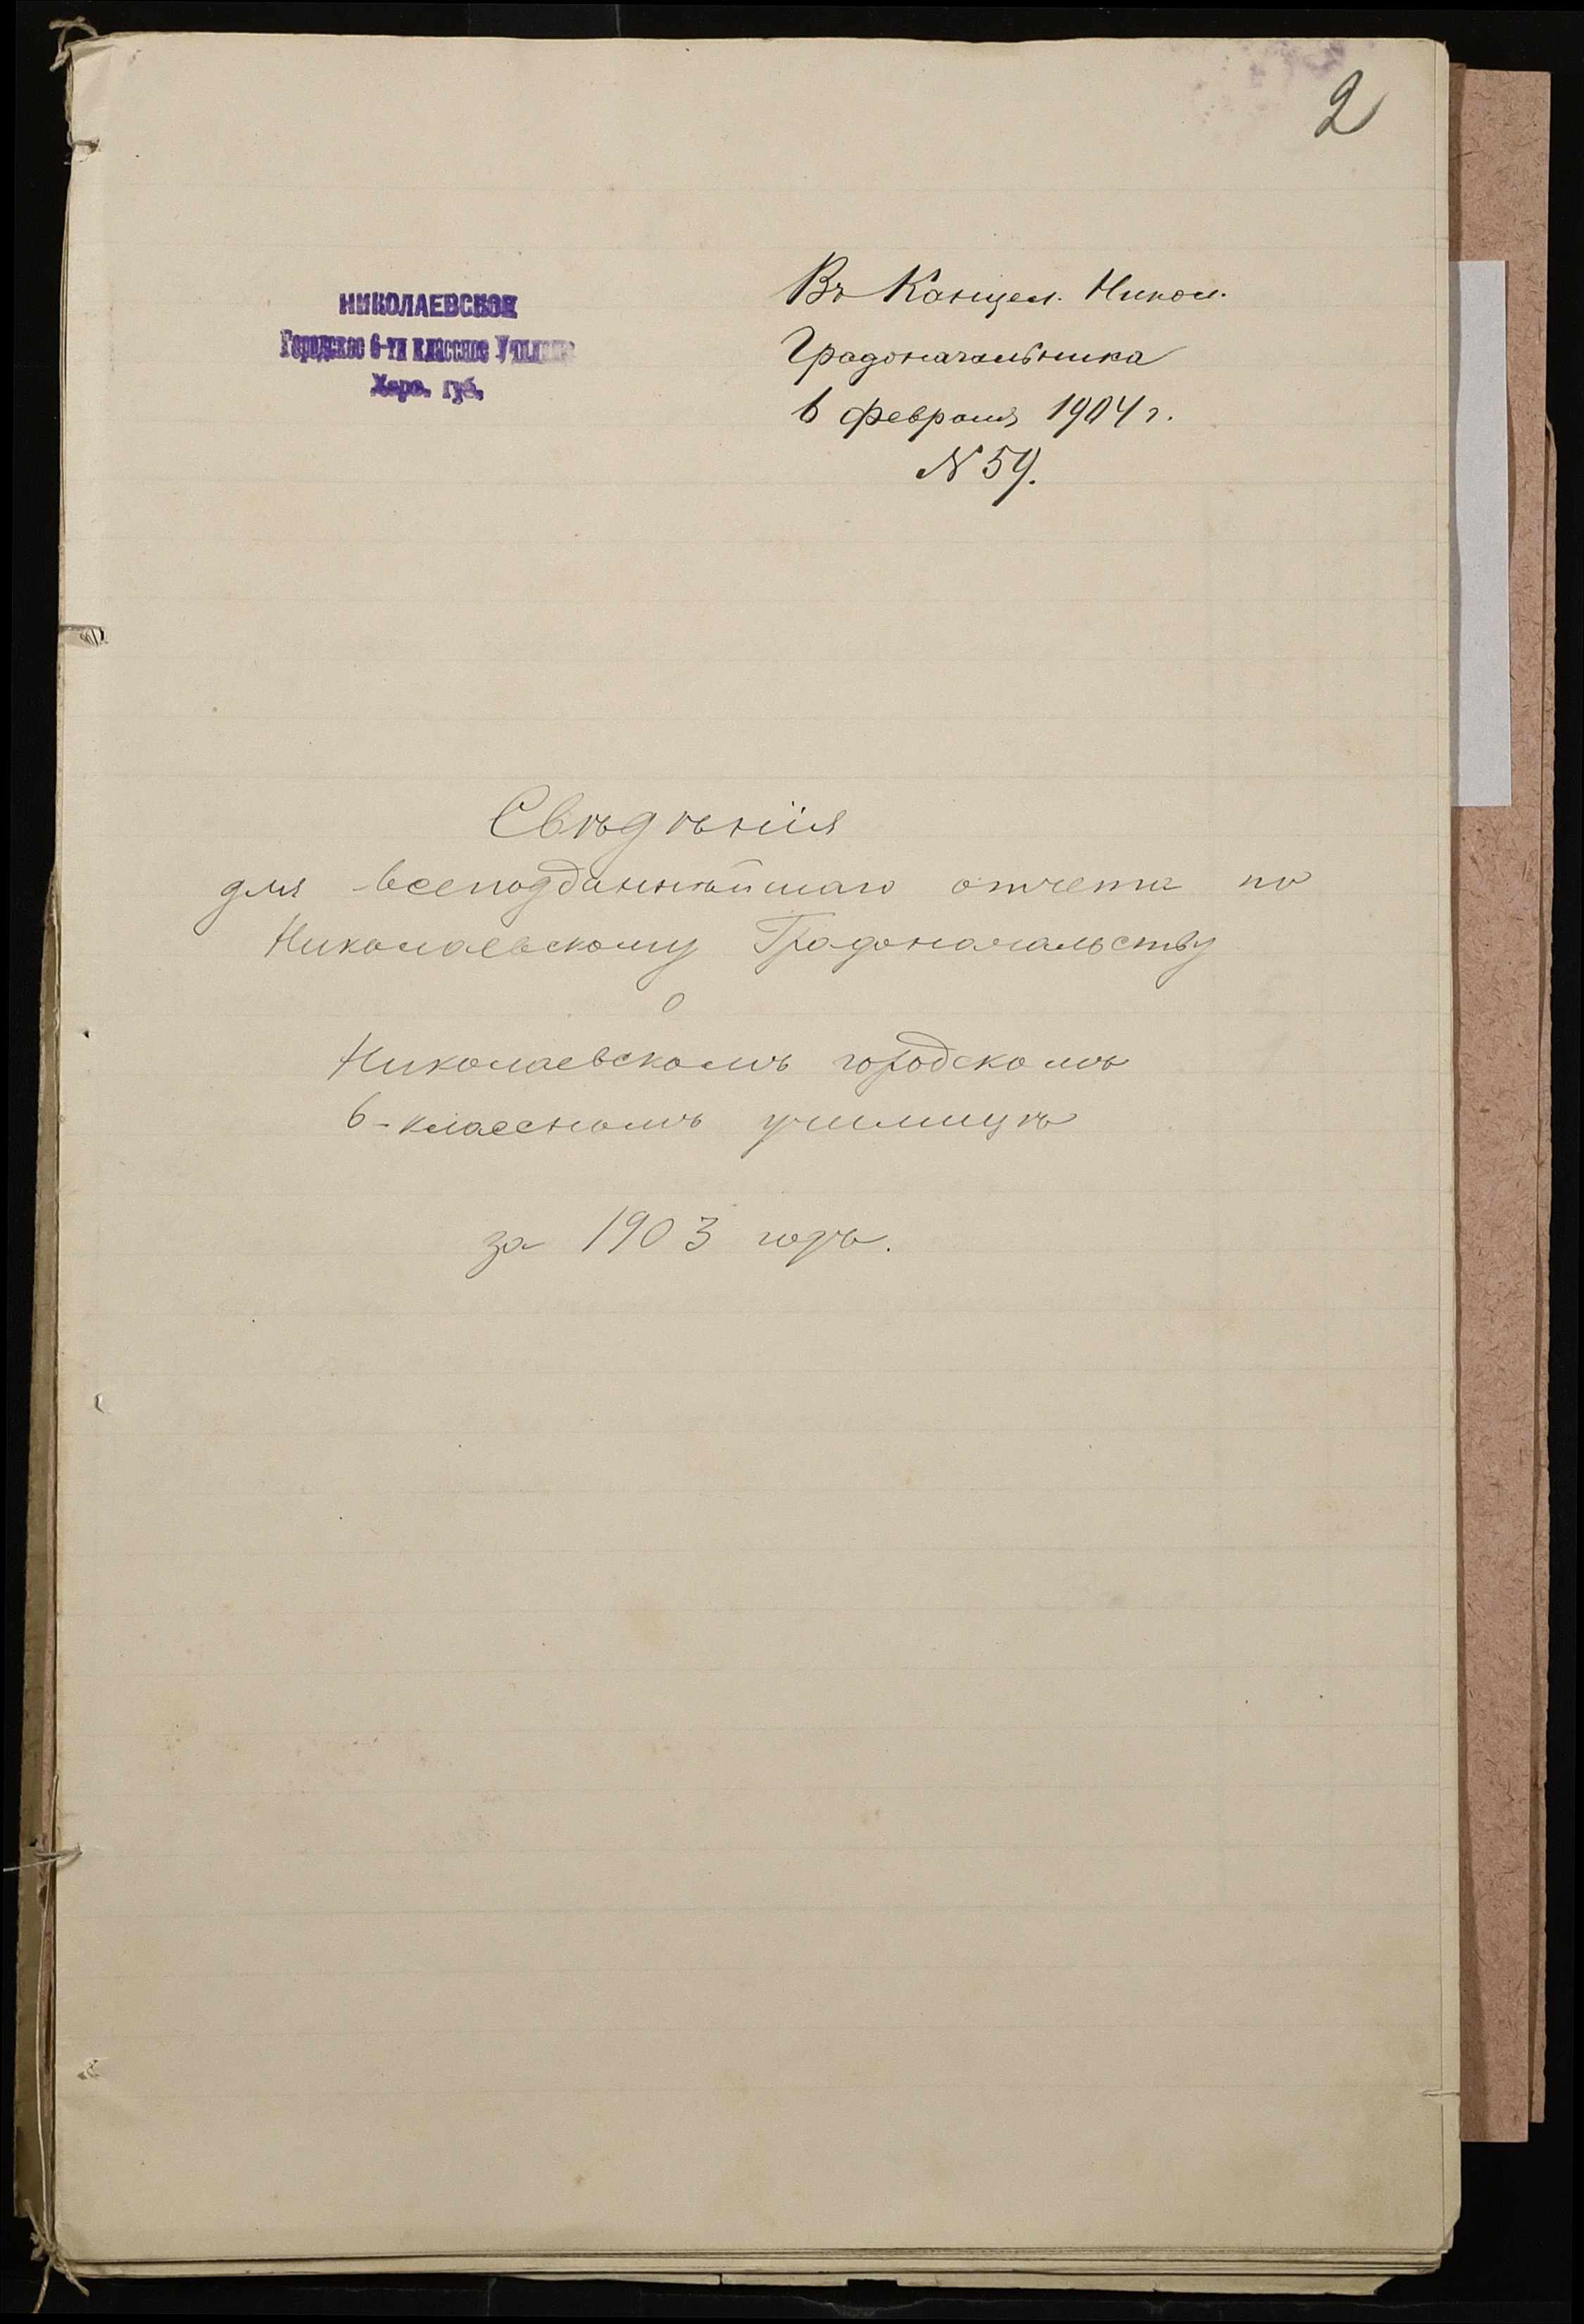 2
НИКОЛАЕВСКОЕ
Городское 6-ти классное Училище
Херс. губ.
Въ Канцел. Никол.
Градоначальника
6 февраля 1904 г.
№ 59.
Свѣдѣнія
для всеподданнѣйшаго отчета по
Николаевскому Градоначальству
о
Николаевскомъ городскомъ
6-классномъ училищѣ
за 1903 годъ.